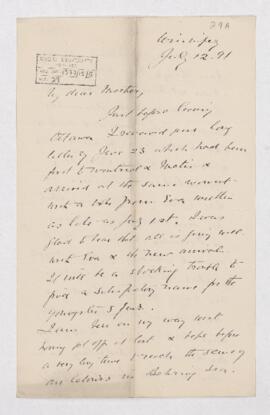 29A
Winnipeg
July 12. 91
My dear Mother,
Just before leaving
Ottawa I received your long
letter of June 23 which had been
first to Montreal & Metis &
arrived at the same moment
with a note from Eva written
as late as July 1st. I was
glad to hear that all is going well
with Eva & the new arrival.
It will be a shocking trouble to
find a satisfactory name for the
youngster I find.
I am here on my way west
having got off at last & hope before
a very long time to reach the scene of
in Behring Sea.